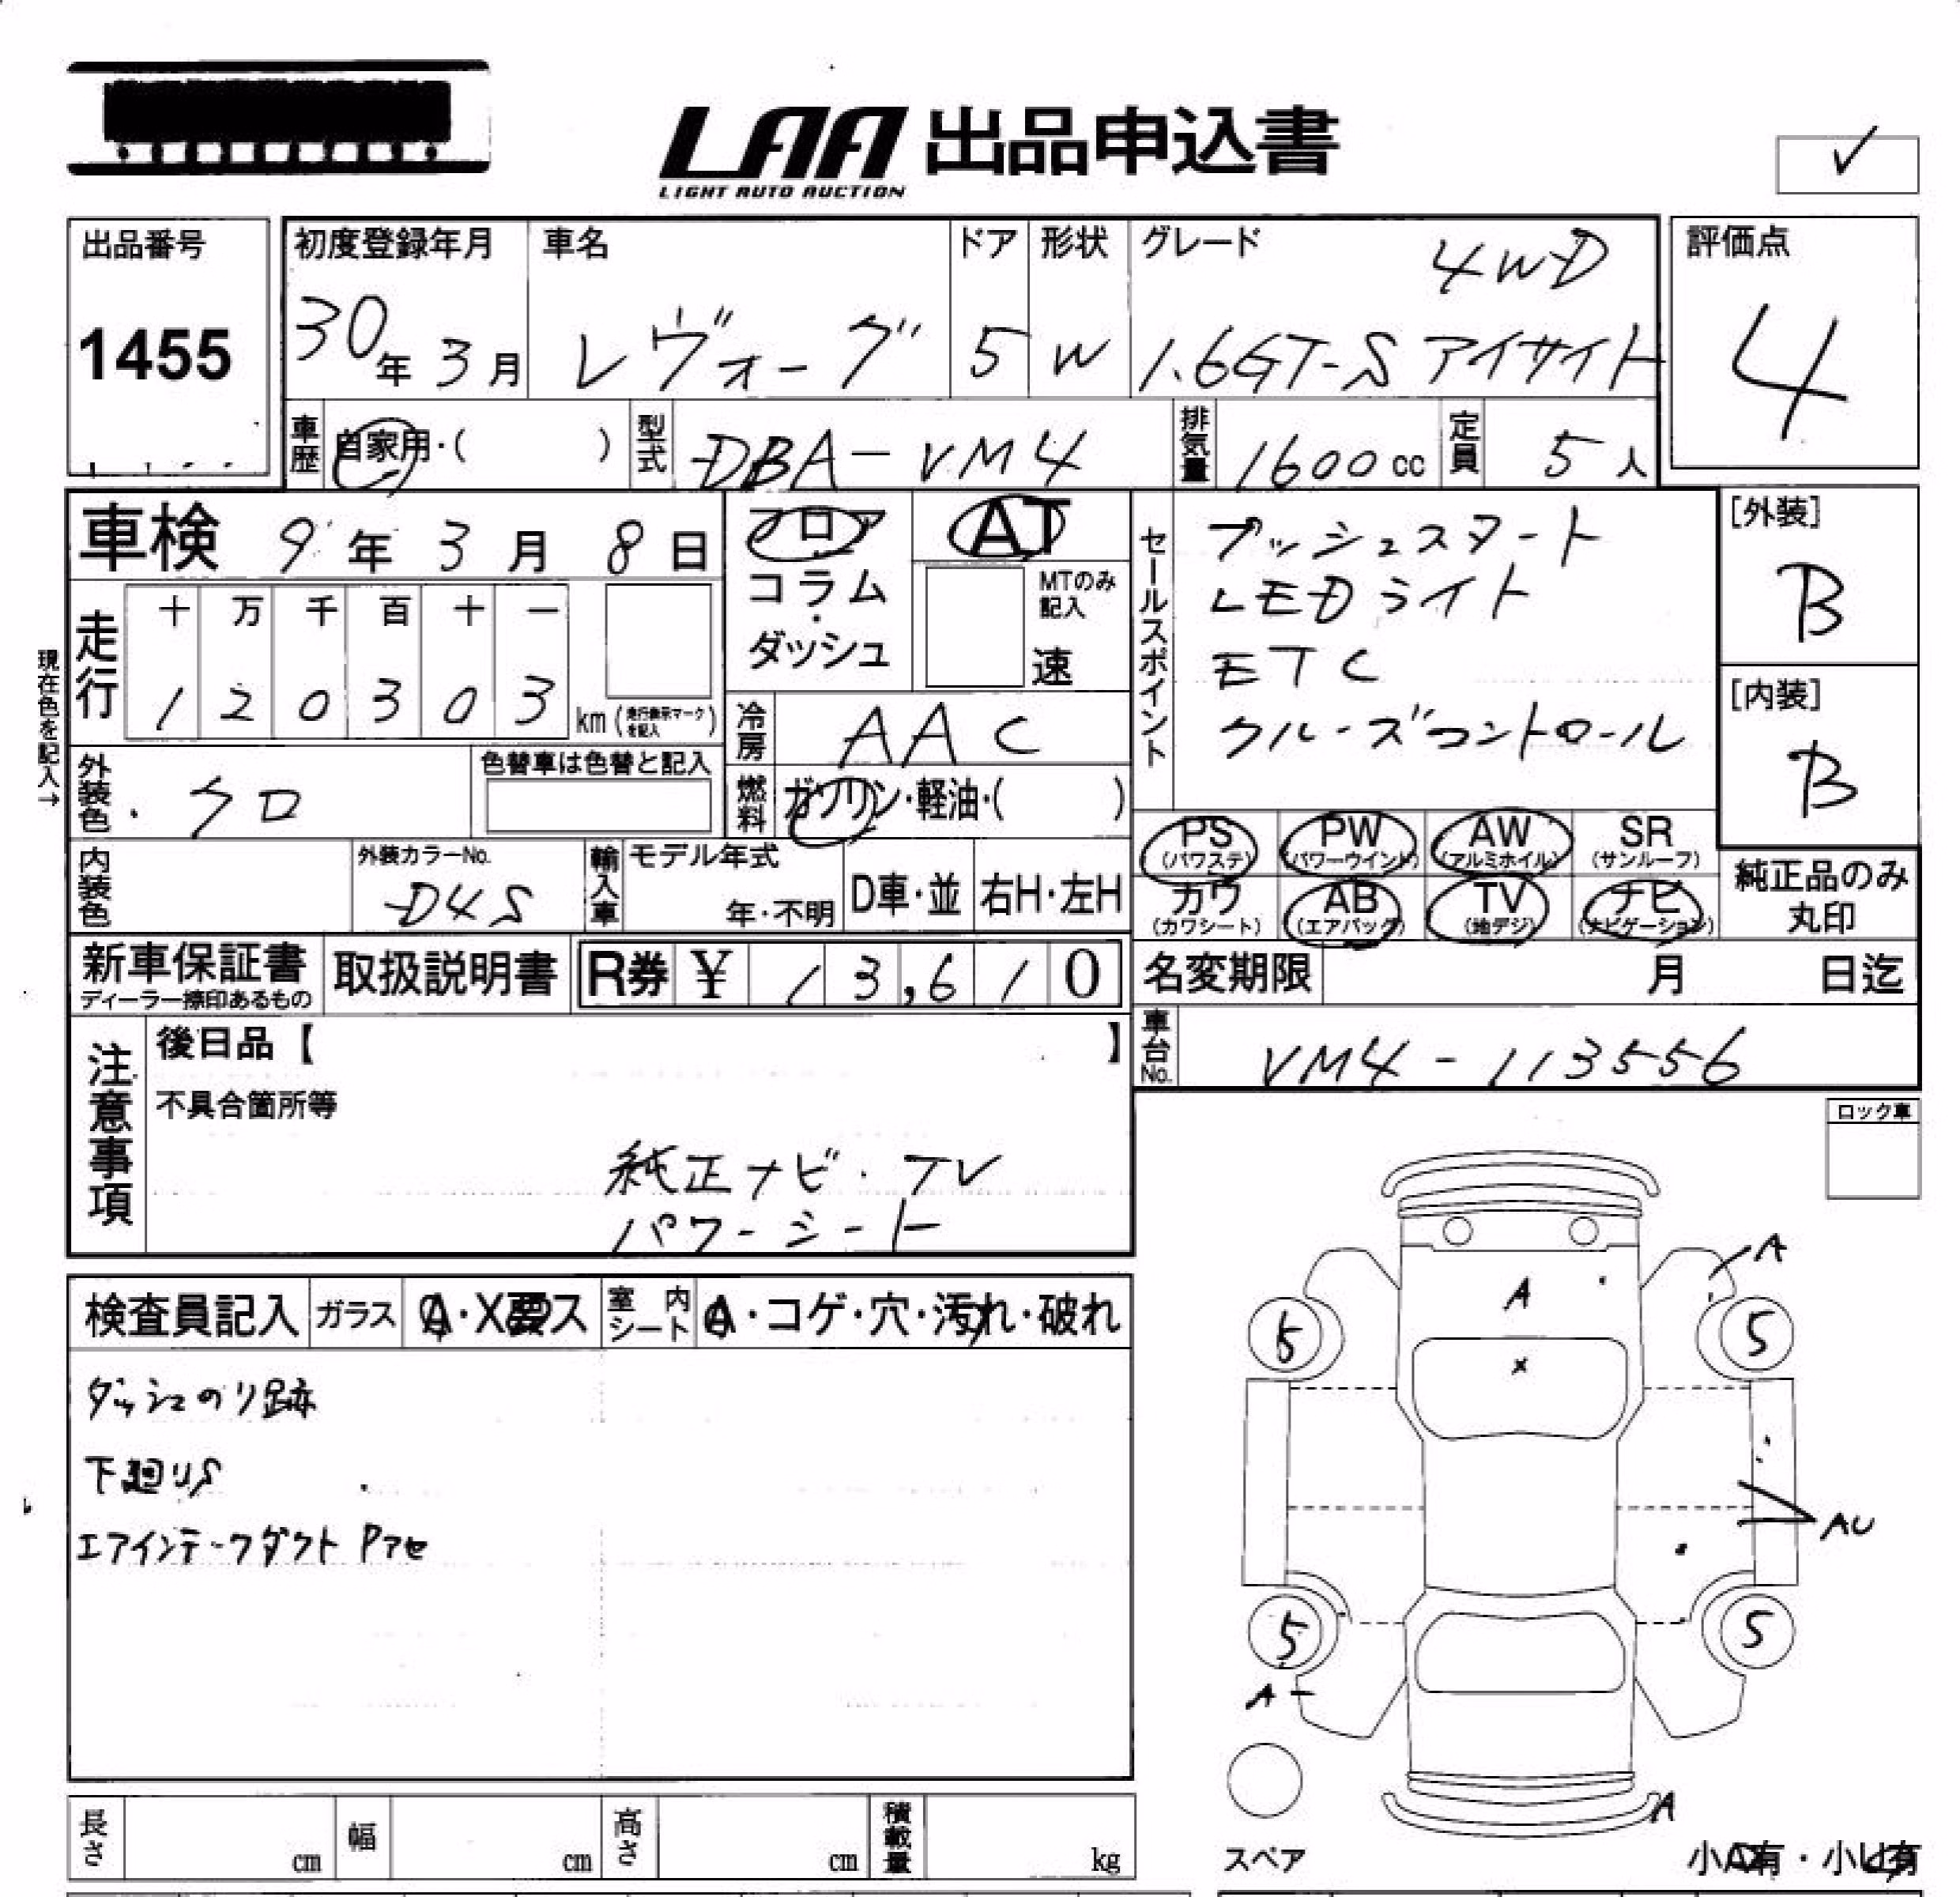 LAA 出品申込書
LIGHT AUTO AUCTION
✓
出品番号
1455
初度登録年月
30年3月
車名
レヴォーグ
ドア
5
形状
W
グレード
4WD
1.6GT-S アイサイト
評価点
4
車歴
自家用・( )
型式
DBA-VM4
排気量
1600cc
定員
5人
車検 9年3月8日
フロア
コラム
・
ダッシュ
AT
MTのみ記入
速
セールスポイント
プッシュスタート
LEDライト
ETC
クルーズコントロール
[外装]
B
[内装]
B
現在色を記入→
走行
十 万 千 百 十 一
1 2 0 3 0 3 km (走行表示マークを記入)
冷房
AAC
外装色
クロ
色替車は色替と記入
燃料
ガソリン・軽油・( )
PS (パワステ)
PW (パワーウインド)
AW (アルミホイル)
SR (サンルーフ)
カワ (カワシート)
AB (エアバッグ)
TV (地デジ)
ナビ (ナビゲーション)
純正品のみ
丸印
内装色
外装カラーNo.
D4S
輸入車
モデル年式
年・不明
D車・並
右H・左H
新車保証書
ディーラー捺印あるもの
取扱説明書
R券 ¥ 13,610
名変期限 月 日迄
車台No.
VM4-113556
注意事項
後日品【 】
不具合箇所等
純正ナビ・TV
パワーシート
ロック車
検査員記入
ガラス
A・X要ス
室内シート
A・コゲ・穴・汚れ・破れ
ダッシュのり跡
下廻りS
エアインテークダクト Pアセ
A
A
X
5
5
AU
5
5
A
A
スペア
小A有・小U有
長さ cm
幅 cm
高さ cm
積載量 kg